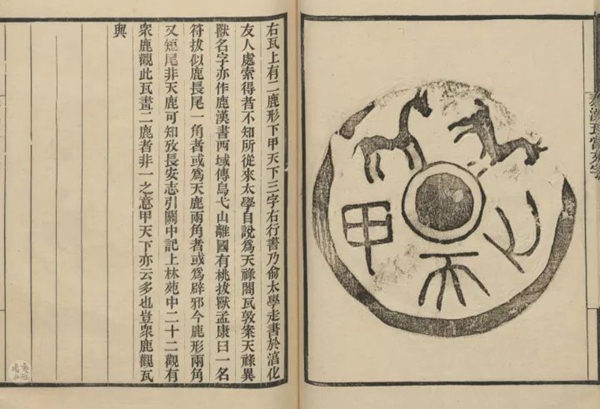 甲天下
右瓦上有二鹿形下甲天下三字右行書乃俞太學走書於湻化
友人處索得者不知所從來太學自說爲天祿閣瓦敦案天祿異
獸名字亦作鹿漢書西域傳烏弋山離國有桃拔獸孟康曰一名
符拔似鹿長尾一角者或爲天鹿兩角者或爲辟邪今鹿形兩角
又短尾非天鹿可知攷長安志引關中記上林苑中二十二觀有
衆鹿觀此瓦畫二鹿者非一之意甲天下亦云多也豈衆鹿觀瓦
與